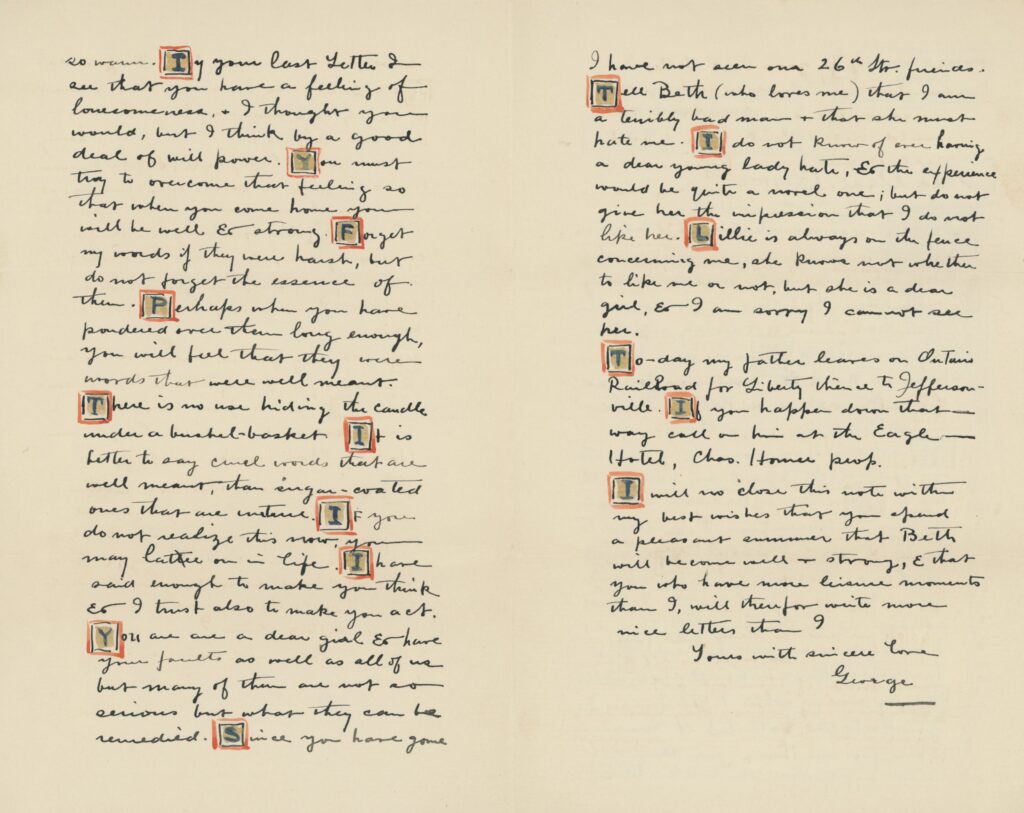 so warm. Iy your last Letter I
see that you have a feeling of
lonesomeness, + I thought you
would, but I think by a good
deal of will power. You must
try to overcome that feeling so
that when you come home you
will be well & strong. Forget
my words if they were harsh, but
do not forget the essence of
them. Perhaps when you have
pondered over them long enough,
you will feel that they were
words that were well meant.
There is no use hiding the candle
under a bushel-basket It is
better to say cruel words that are
well meant, than sugar-coated
ones that are untrue. If you
do not realize this now, you
may latter on in life. I have
said enough to make you think
& I trust also to make you act.
You are are a dear girl & have
your faults as well as all of us
but many of them are not so
serious but what they can be
remedied. Since you have gone
I have not seen our 26th Str. friends.
Tell Beth (who loves me) that I am
a terribly bad man + that she must
hate me. I do not know of ever having
a dear young lady hate, & the experience
would be quite a novel one; but do not
give her the impression that I do not
like her. Lillie is always on the fence
concerning me, she knows not whether
to like me or not, but she is a dear
girl, & I am sorry I cannot see
her.
To-day my father leaves on Ontario
Railroad for Liberty thence to Jefferson-
ville. If you happen down that
way call on him at the Eagle
Hotel, Chas. Homer prop.
I will no close this note with
my best wishes that you spend
a pleasant summer that Beth
will become well + strong, & that
you who have more leisure moments
than I, will therefor write more
nice letters than I
Yours with sincere love
George